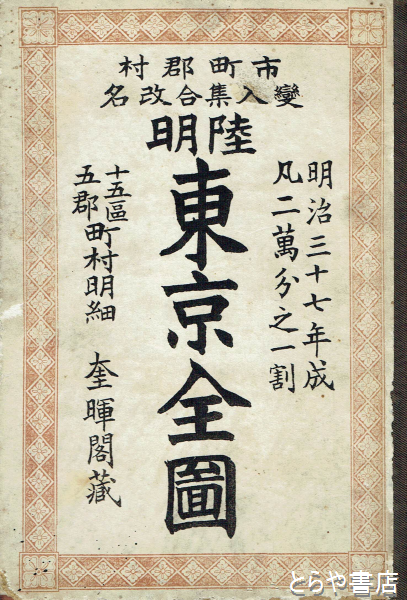 市町郡村
變入集合改名
陸明
東京全圖
明治三十七年成
凡二萬分之一割
十五區
五郡町村明細
奎暉閣藏
とらや書店